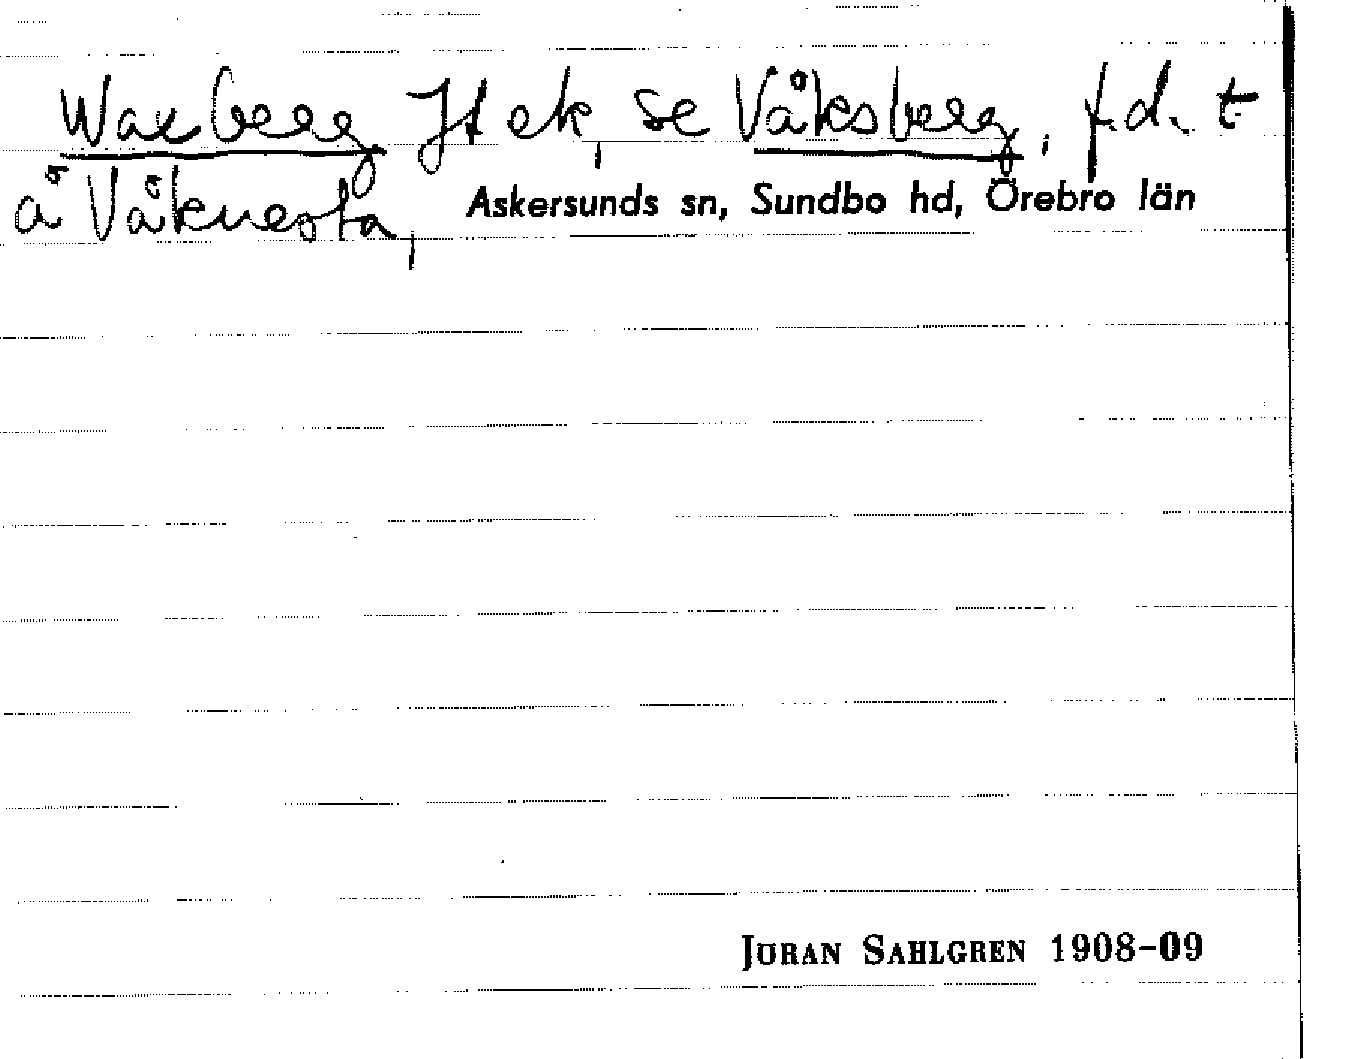 Waxberg Jf ek, se Våksberg, f.d. t
å Våknesta, Askersunds sn, Sundbo hd, Örebro län
JÖRAN SAHLGREN 1908-09